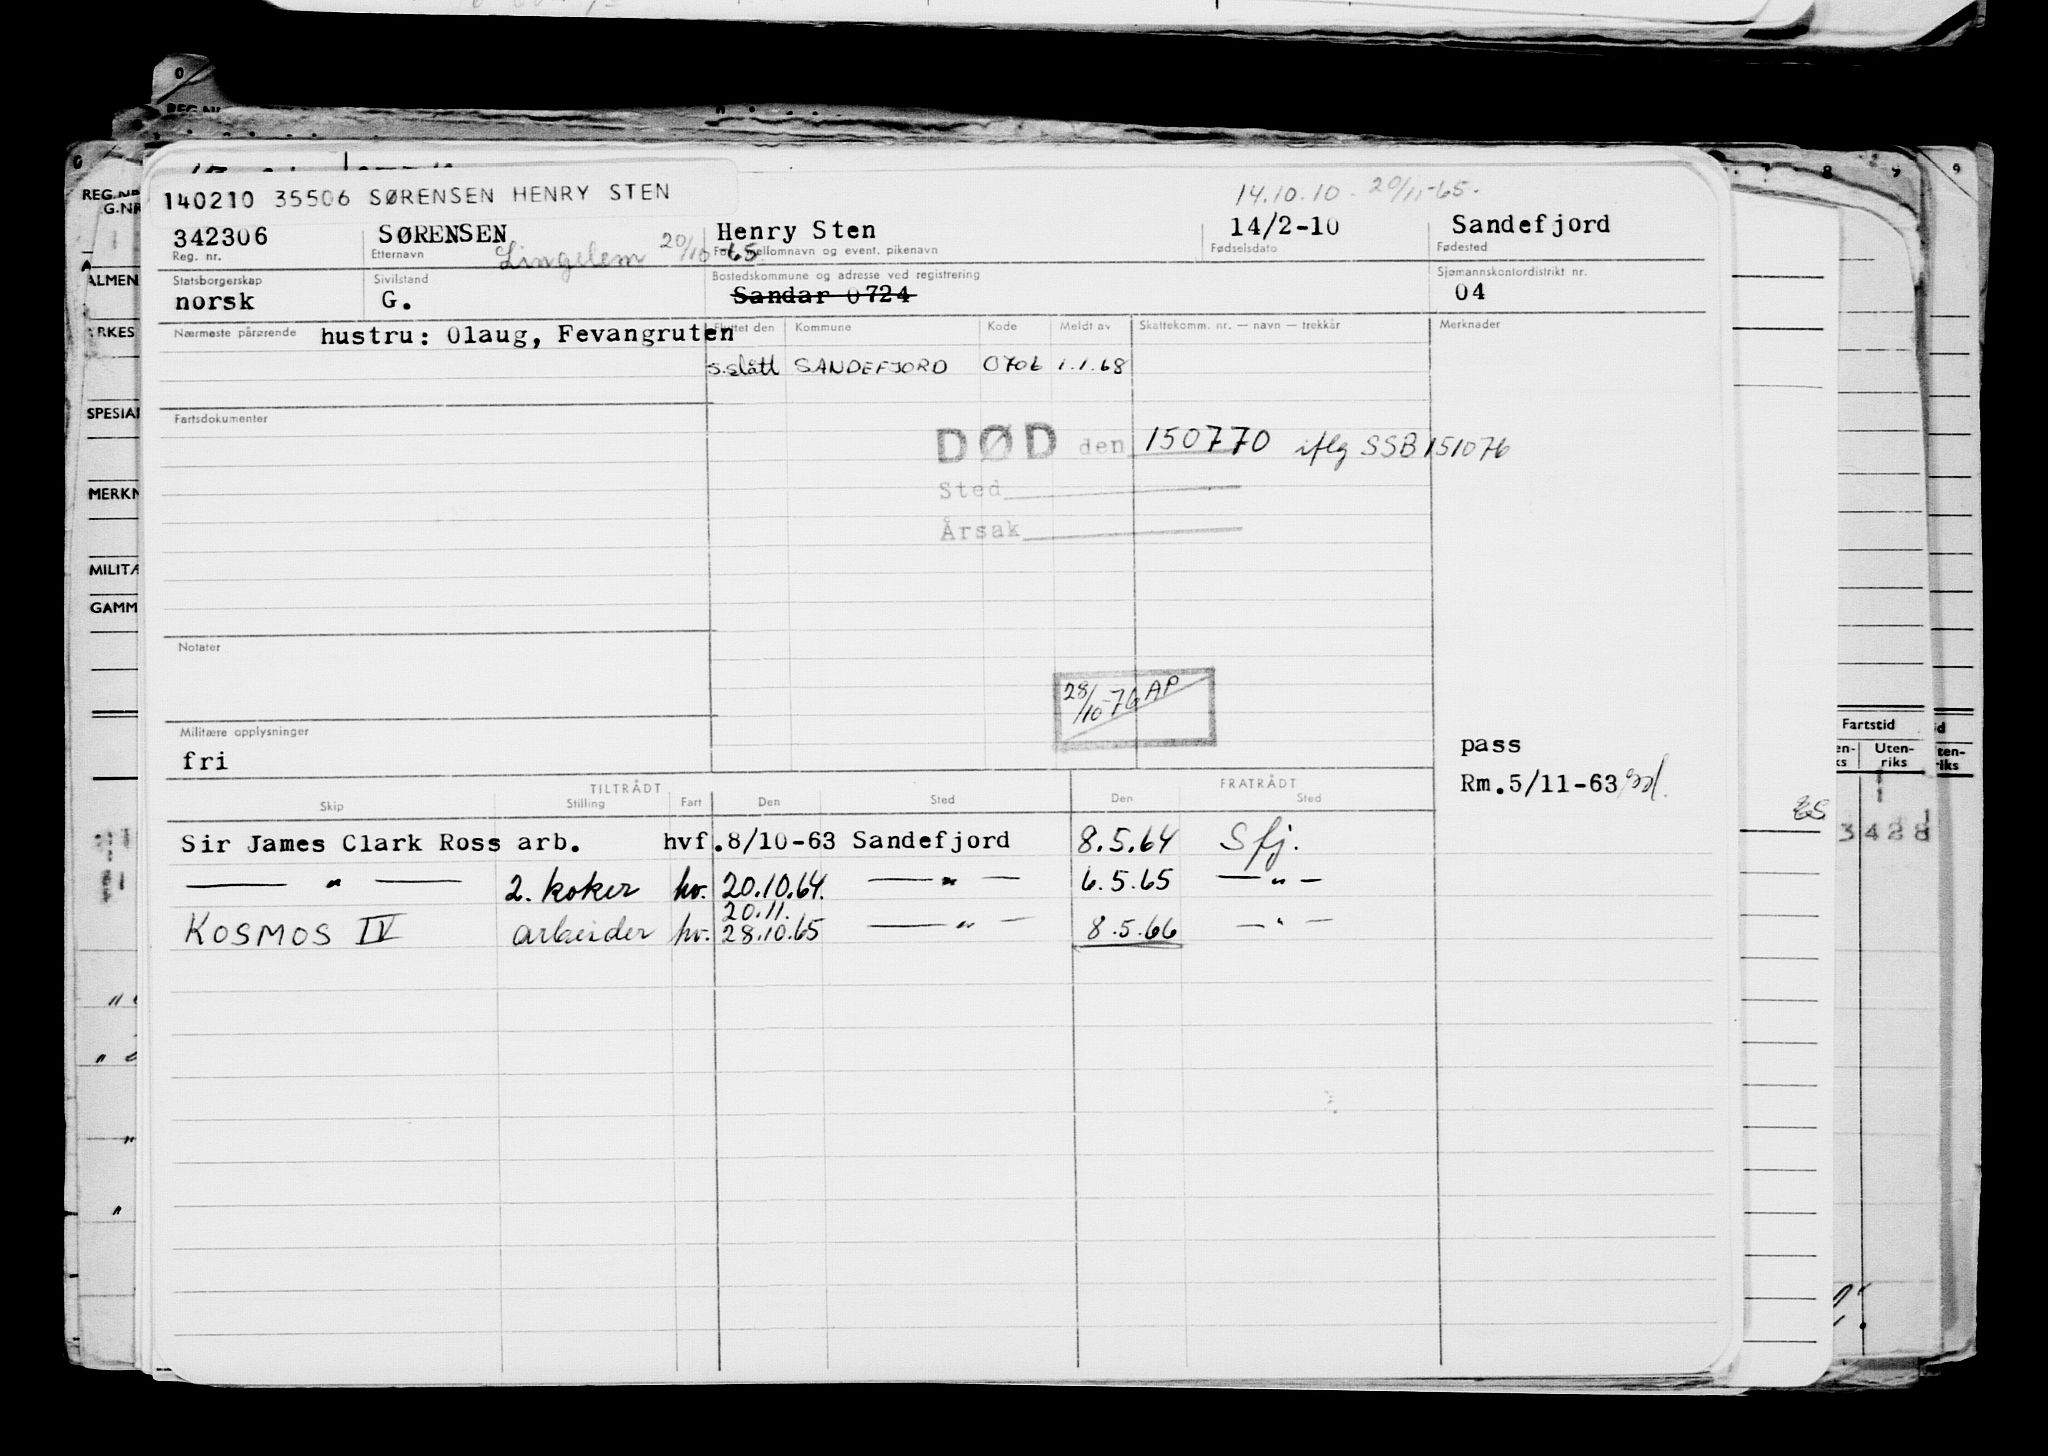 140210 35506 SØRENSEN HENRY STEN
14.10.10 - 20/11-65.
342306 SØRENSEN Henry Sten 14/2-10 Sandefjord
Reg. nr. Etternavn Lingelem 20/10 -65. For-, mellomnavn og event. pikenavn Fødselsdato Fødested
Statsborgerskap Sivilstand Bostedskommune og adresse ved registrering Sjømannskontordistrikt nr.
norsk G. Sandar 0724 04
Nærmeste pårørende hustru: Olaug, Fevangruten Flyttet den Kommune Kode Meldt av Skattekomm. nr. — navn — trekkår Merknader
s.slått SANDEFJORD 0706 1.1.68
Fartsdokumenter
DØD den 150770 iflg SSB 151076
Sted
Årsak
Notater
28/10-76 AP
Militære opplysninger
fri
pass
Rm.5/11-63
TILTRÅDT FRATRÅDT
Skip Stilling Fart Den Sted Den Sted
Sir James Clark Ross arb. hvf. 8/10-63 Sandefjord 8.5.64 Sfj.
— " — 2. koker hv. 20.10.64. — " — 6.5.65 — " —
20.11.
KOSMOS IV arbeider hv. 28.10.65 — " — 8.5.66 — " —
REG.NR
G.NR
ALMEN
SPESIAL
MERKN
MILITÆ
GAMM
Fartstid
Uten-
riks
ES
3428